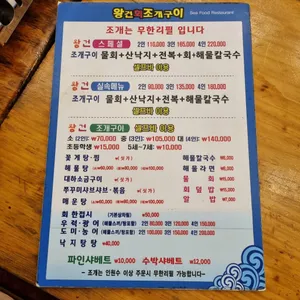 왕건이조개구이
Sea Food Restaurant
조개는 무한리필 입니다
왕건 스페셜 2인 110,000 3인 165,000 4인 220,000
조개구이 물회+산낙지+전복+회+해물칼국수
셀프바 이용
왕건 실속메뉴 2인 80,000 3인 120,000 4인 160,000
조개구이 물회+산낙지+전복+해물칼국수
셀프바 이용
왕건 조개구이 셀프바 이용
소 (2인) ₩70,000 중 (3인) ₩105,000 대 (4인) ₩140,000
초등학생 ₩15,000 5세~7세 ₩10,000
꽃게탕·찜 해물칼국수
해물탕 해물라면
대하소금구이 물회
쭈꾸미샤브샤브·볶음 회덮밥
매운탕 알밥
회한접시 ₩50,000
우럭·광어
도미·농어
낙지탕탕 ₩40,000
파인샤베트 ₩10,000 수박샤베트 ₩12,000
- 조개는 인원수 이상 주문시 무한리필 가능합니다 -